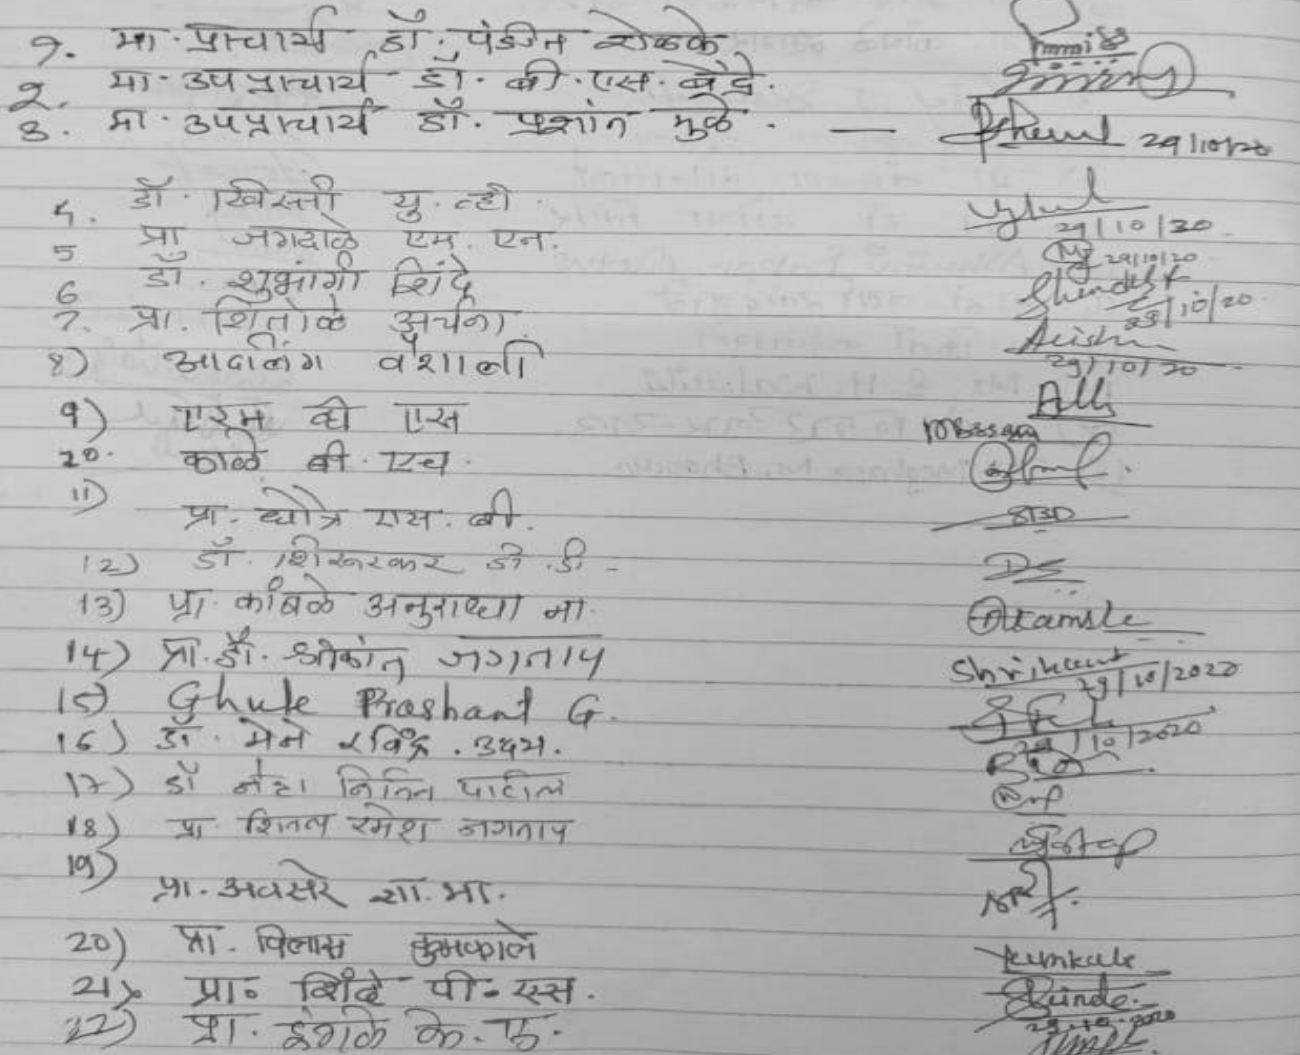 १. मा. प्राचार्य डॉ. पंडीत शेळके
२. मा. उपप्राचार्य डॉ. बी. एस. बोंद्रे.
३. मा. उपप्राचार्य डॉ. प्रशांत मुळे. — 29/10/20
4. डॉ. खिस्ती यु. व्ही. 29/10/20.
5 प्रा जगदाळे एम. एन. 29/10/20
6 डॉ. शुभांगी शिंदे 29/10/20.
7. प्रा. शितोळे अर्चना 29/10/20
8) आदलिंग वैशाली
9) एरम व्ही एस
10. काळे बी. एच.
11) प्रा. थोत्रे एस. बी.
12) डॉ. शिरूरकर डी. डी -
13) प्रा. कांबळे अनुराधा ना. Akamble
14) प्रा. डॉ. श्रीकांत जगताप Shrikant 29/10/2020
15) Ghule Prashant G. 29/10/2020
16) डॉ. मेने रविंद्र. उदय.
17) डॉ नेहा नितिन पाटील
18) प्रा. शितल रमेश जगताप
19) प्रा. अवसरे शा. भा.
20) प्रा. विलास कुमकाले kumkale
21) प्रा. शिंदे पी. एस. Shinde. 29.10.2020
22) प्रा. इंगळे के. एफ.